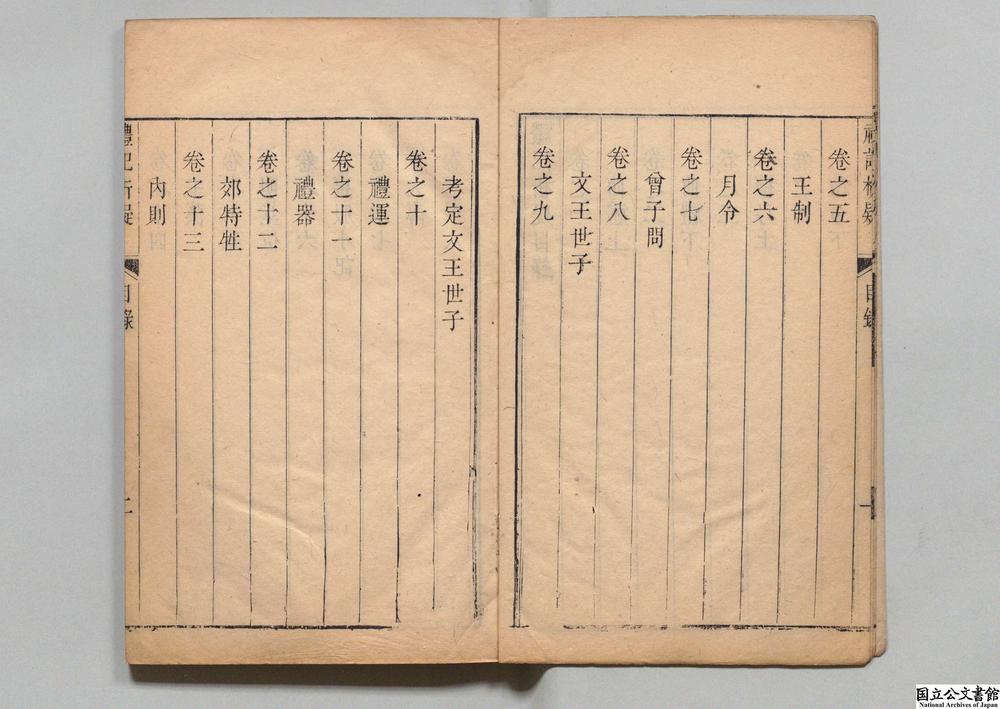 卷之五
王制
卷之六
月令
卷之七
曾子問
卷之八
文王世子
卷之九
目錄
一
考定文王世子
卷之十
禮運
卷之十一
禮器
卷之十二
郊特牲
卷之十三
內則
禮記析疑
目錄
二
国立公文書館
National Archives of Japan